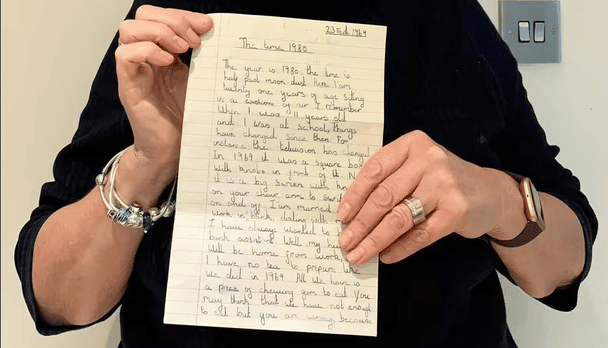 23rd 1969
The time 1980
The year is 1980, the time is
half past moon dust. Here I am
twenty one years of age siting
in a cushion of air I remember
when I was 11 years old
and I was at school, things
have changed since then. For
instance the television has changed
In 1969 it was a square box
with knobs in front of it. N
it is a big screen with
on your chair arm to
on and off. I am married
work in bank dating with
I have always wanted to
bank assistant. Well my hu
will be home from work,
I have no tea to prepare like
we did in 1969. All we have is
a piece of chewing gum to eat. You
may think that we have not enough
to eat but you are wrong because